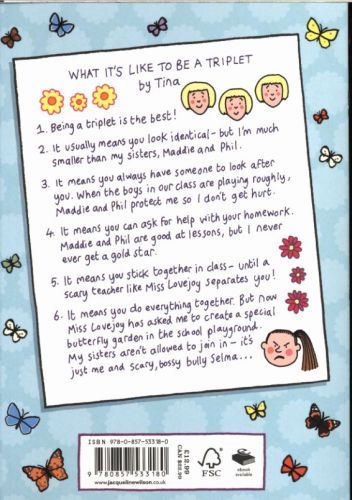 WHAT IT'S LIKE TO BE A TRIPLET
by Tina
1. Being a triplet is the best!
2. It usually means you look identical - but I'm much
smaller than my sisters, Maddie and Phil.
3. It means you always have someone to look after
you. When the boys in our class are playing roughly,
Maddie and Phil protect me so I don't get hurt.
4. It means you can ask for help with your homework.
Maddie and Phil are good at lessons, but I never
ever get a gold star.
5. It means you stick together in class - until a
scary teacher like Miss Lovejoy separates you!
6. It means you do everything together. But now
Miss Lovejoy has asked me to create a special
butterfly garden in the school playground.
My sisters aren't allowed to join in - it's
just me and scary, bossy bully Selma...
ISBN 978-0-857-53318-0
9 780857 533180
£12.99
FSC
ebook
available
www.jacquelinewilson.co.uk